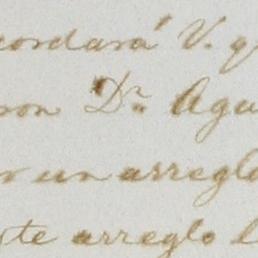 cordará V. q
on Dn. Agu
un arreglo
te arreglo l